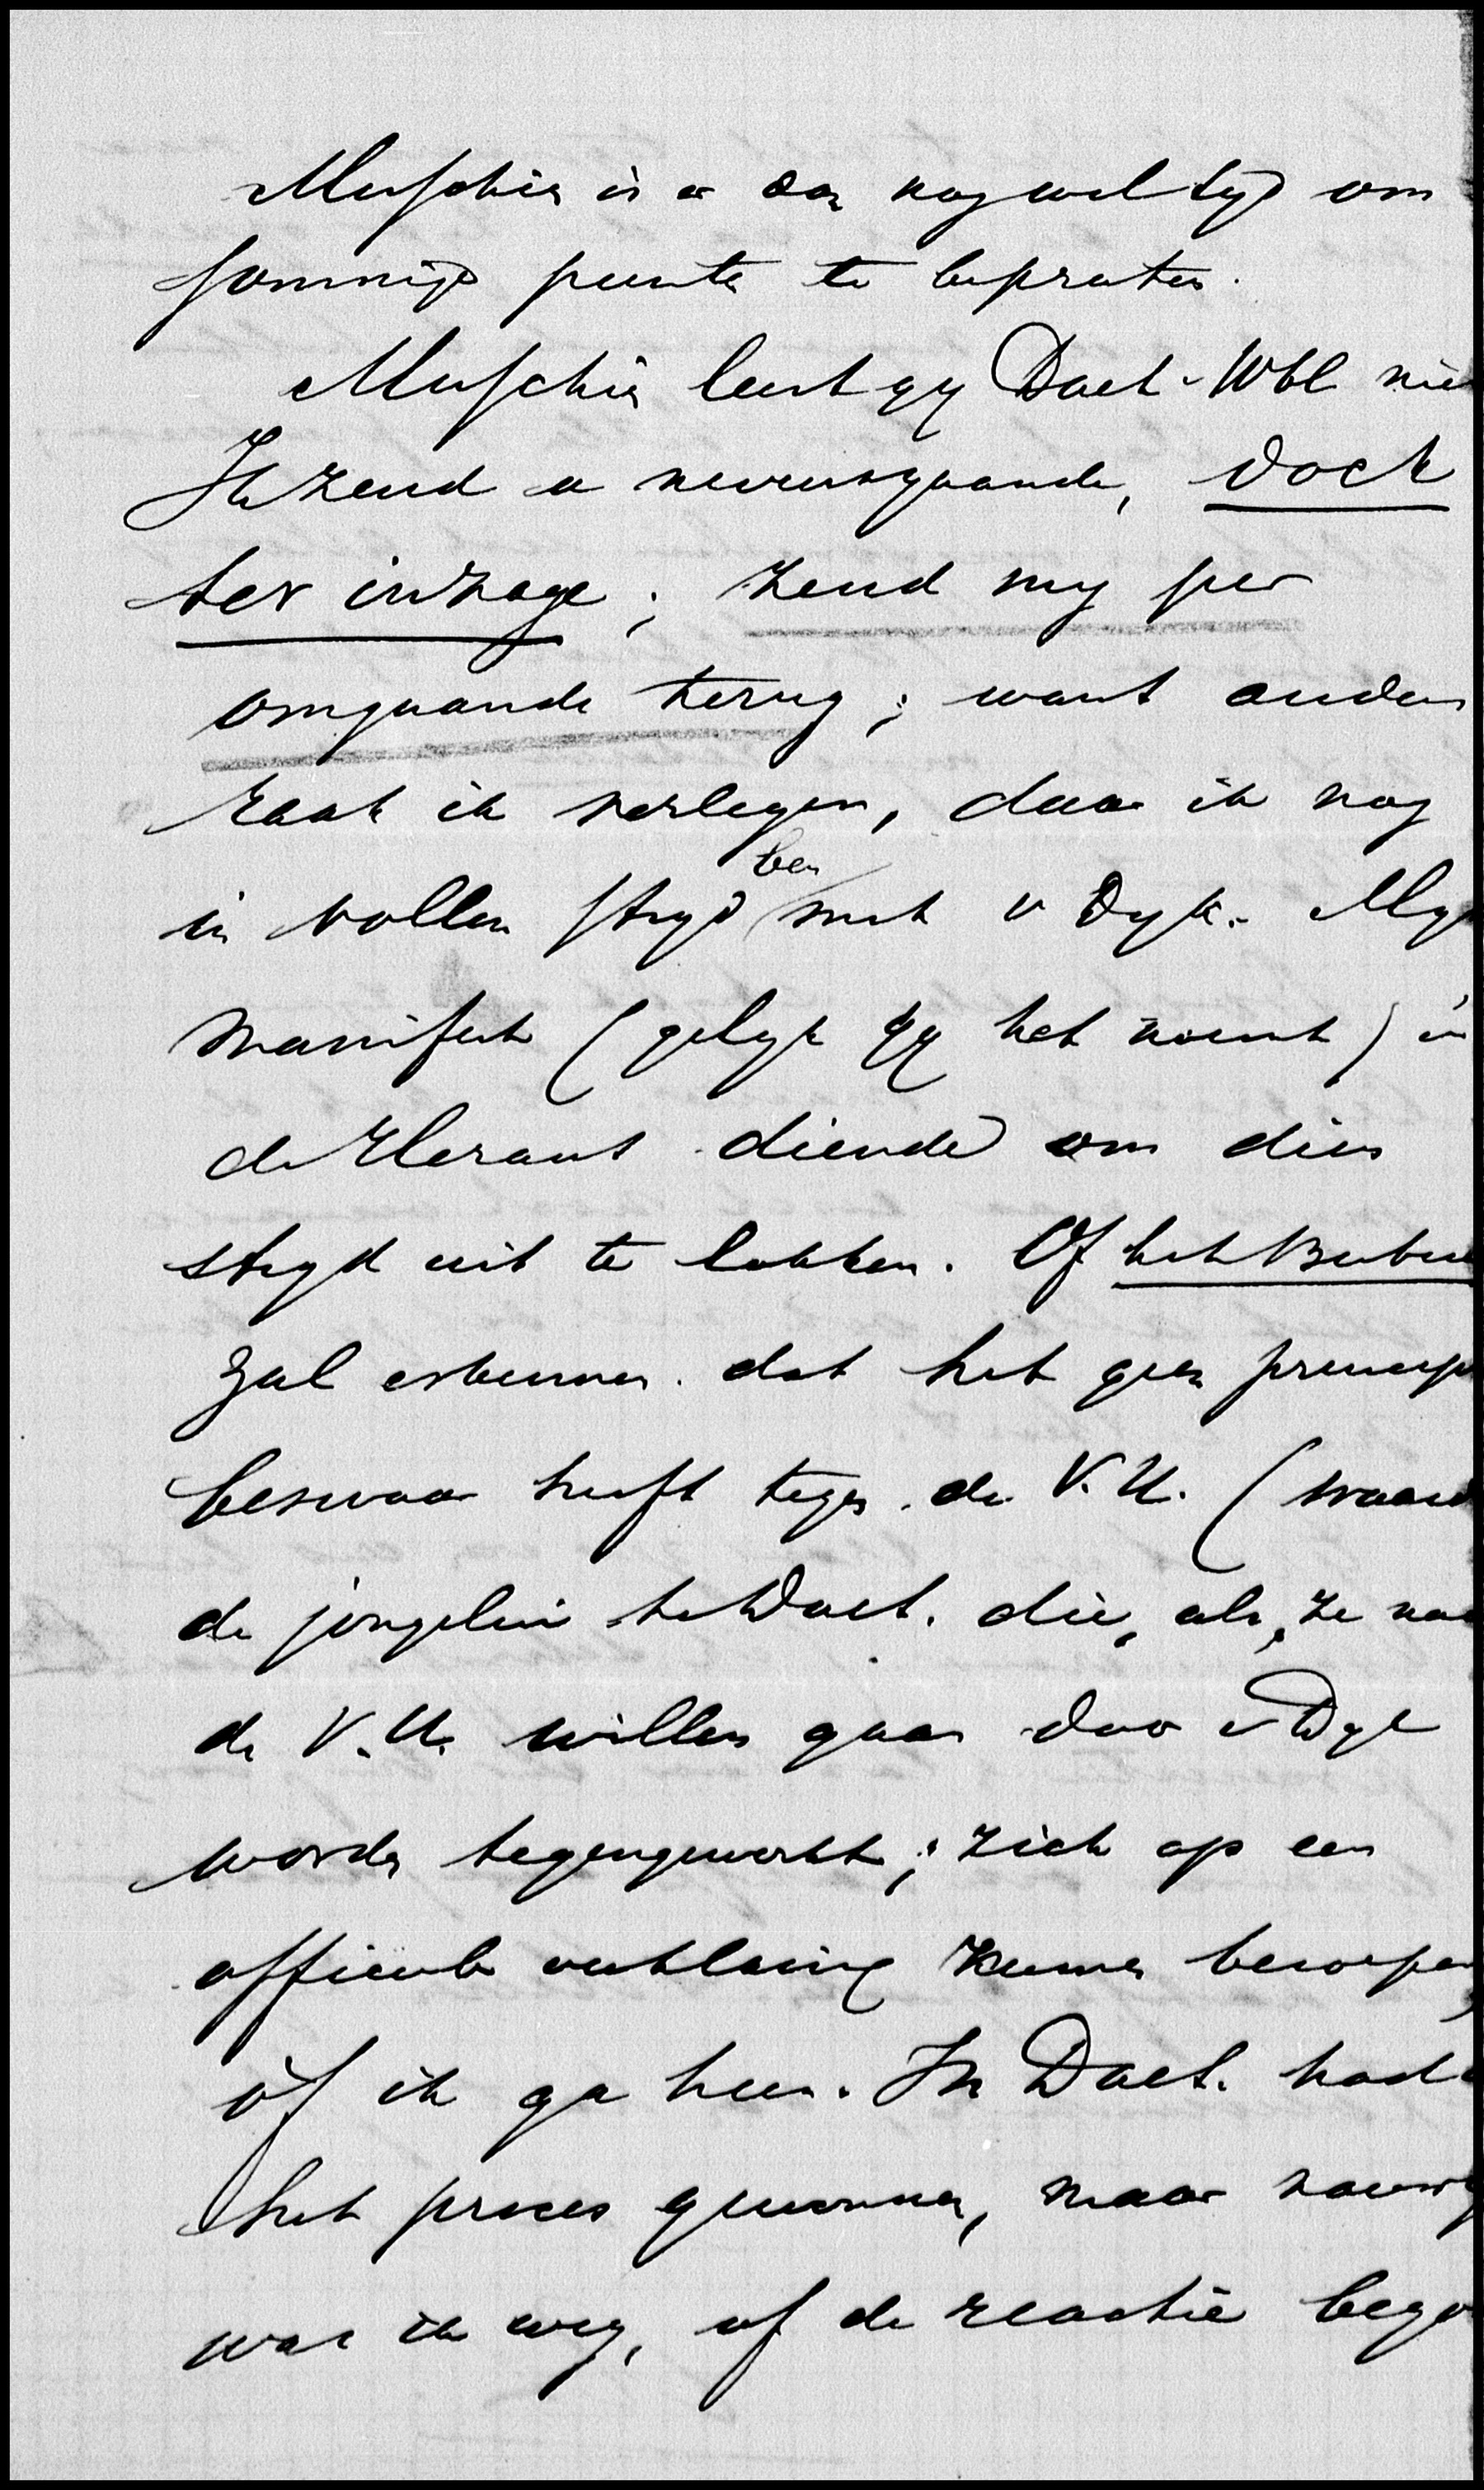 Misschien is er dan nog wel tyd om
sommige punten te bespreken.
Misschien leest gy Doet. Wbl nie
Ik zend u nevensgaande, doch
ter inzage; zend my per
omgaande terug; want anders
raak ik verlegen, daar ik nog
in vollen stryd ben met v Dyk. Myn
manifest (gelyk gy het noemt) in
de Heraut diende om dien
stryd uit te lokken. Of het Bestuur
zal erkennen dat het geen princip
bezwaar heeft tegen de V.U. (waard
de jongelui te Doet. die, als ze naar
de V.U. willen gaan door v Dyk
worden tegengewerkt; zich op een
officieele verklaring kunnen beroepen,
òf ik ga heen. In Doet. had
het proces gewonnen, maar nauw
was ik weg, of de reactie bego